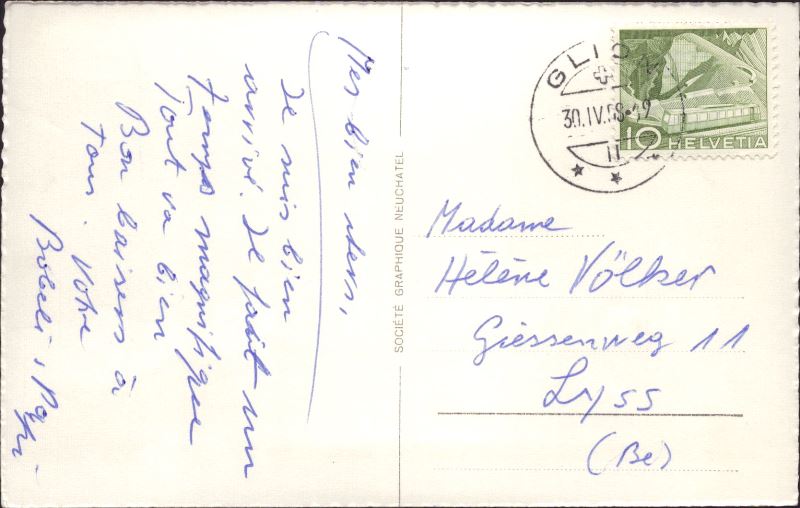 Mes bien chers,
Je suis bien
arrivé. Il fait un
temps magnifique
Tout va bien
Bon baisers à
tous. Votre
SOCIÉTÉ GRAPHIQUE NEUCHATEL
GLION
30.IV.68-12
10 HELVETIA
Madame
Hélène Völker
Giessenweg 11
Lyss
(Be)